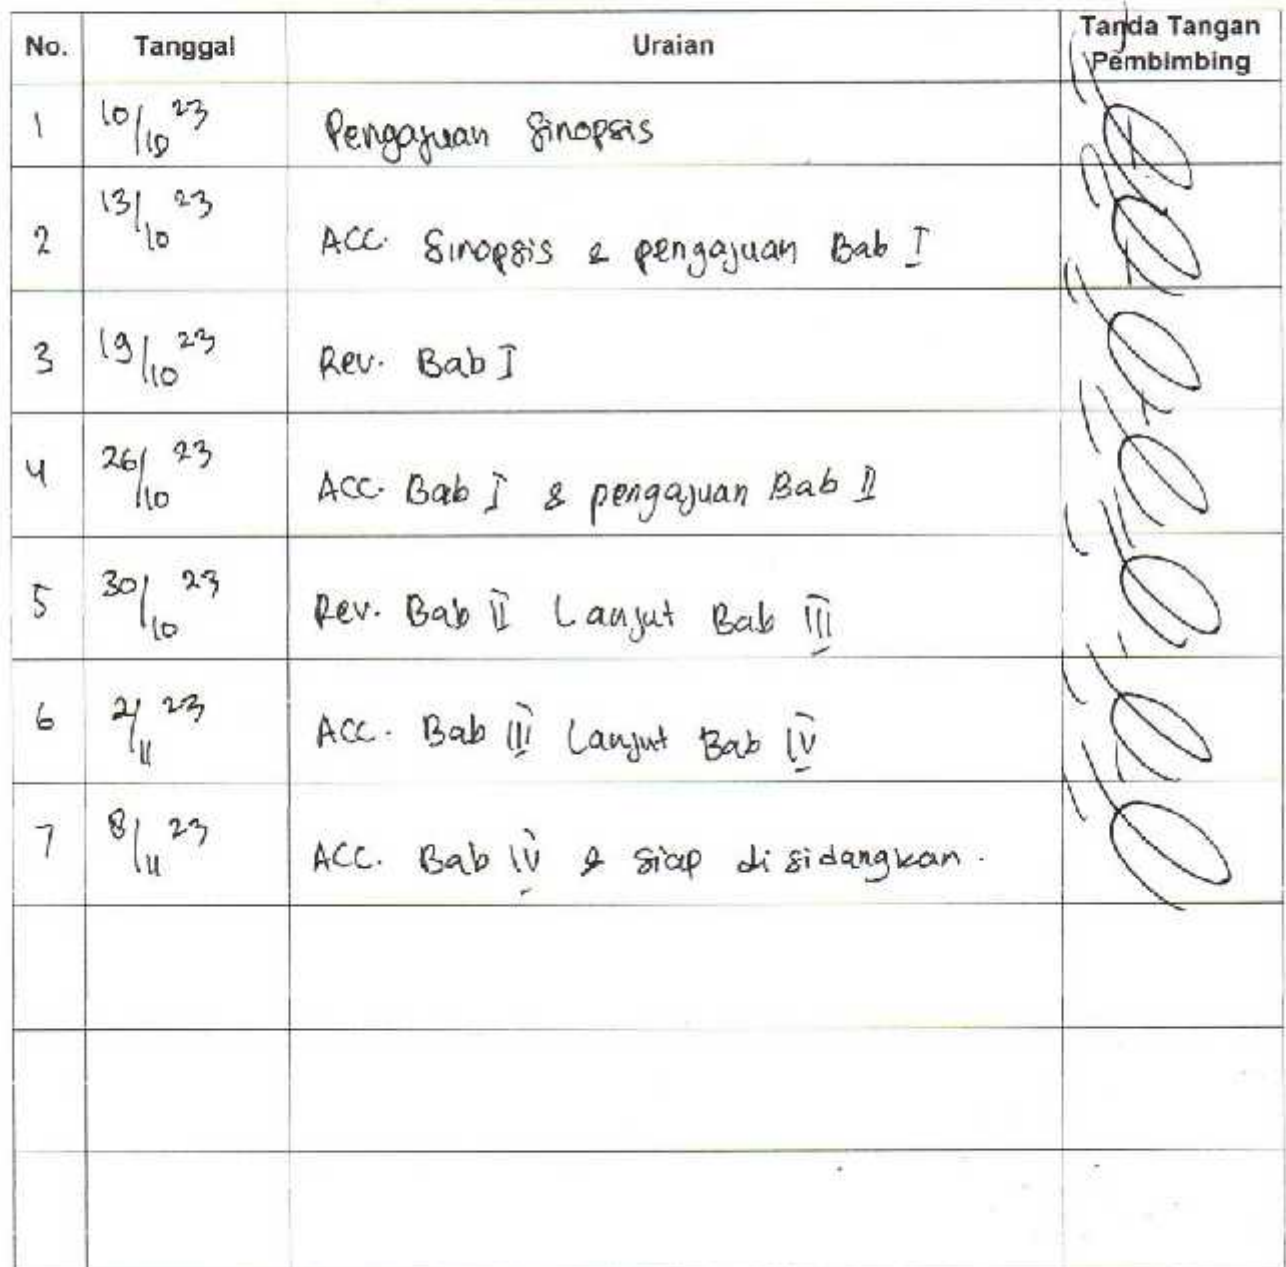 No. Tanggal Uraian Tanda Tangan Pembimbing
1 10/10 23 Pengajuan Sinopsis
2 13/10 23 ACC. Sinopsis & pengajuan Bab I
3 19/10 23 Rev. Bab I
4 26/10 23 ACC. Bab I & pengajuan Bab II
5 30/10 23 Rev. Bab II Lanjut Bab III
6 2/11 23 ACC. Bab III Lanjut Bab IV
7 8/11 23 ACC. Bab IV & siap di sidangkan.